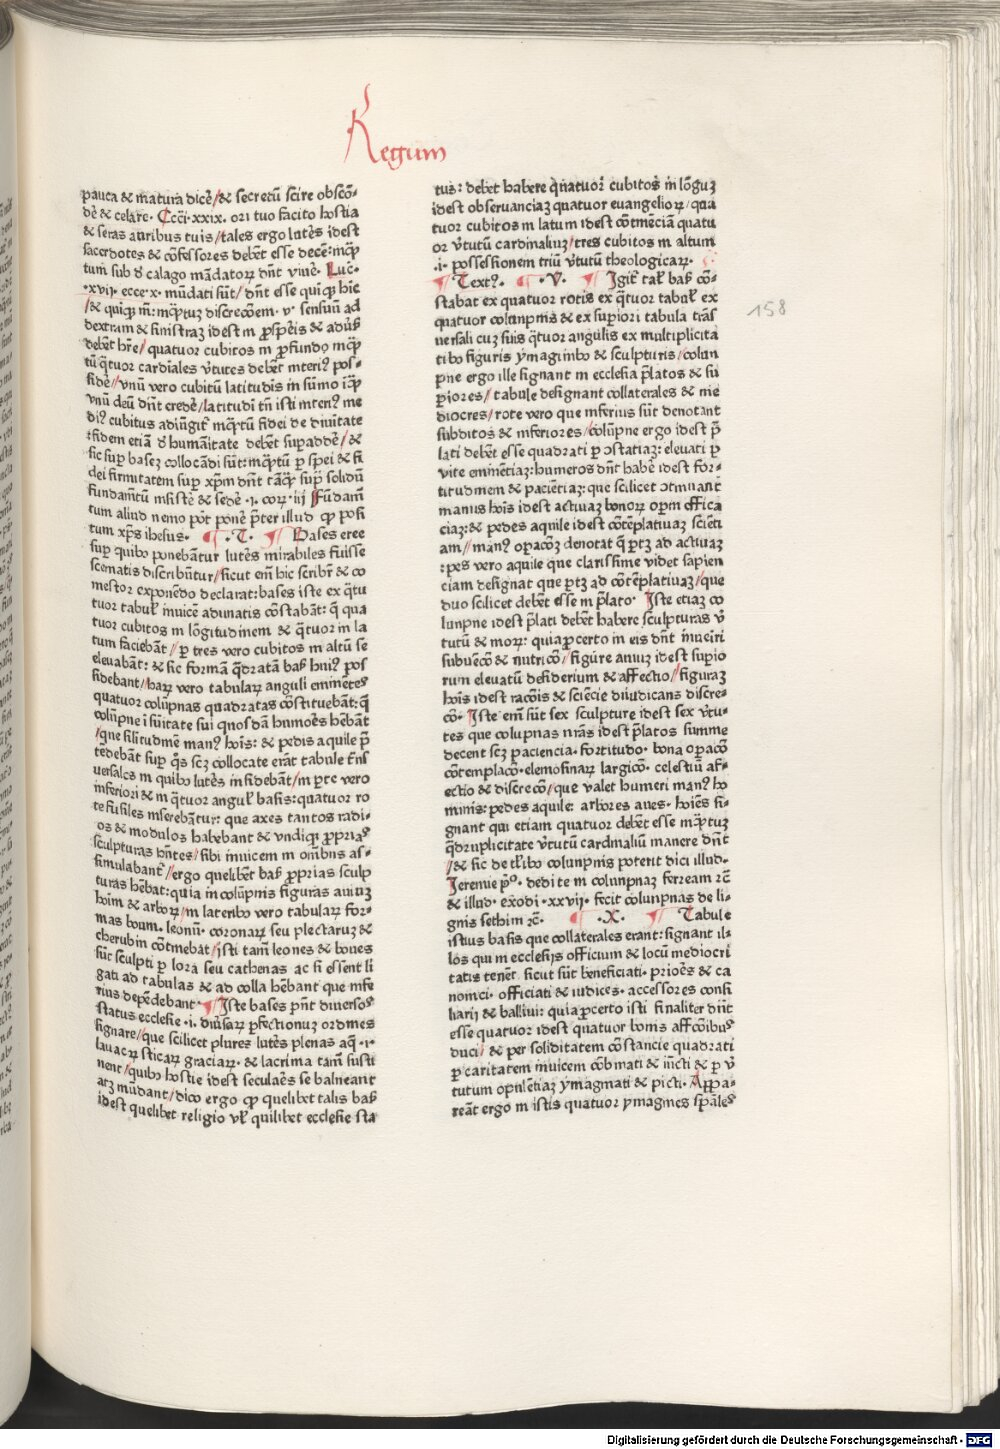 Regum
pauca & matura dicē/& secretū scire obscō-
dē & celare. Ccci.xxix. ori tuo facito hostia
& seras auribus tuis/tales ergo lutēs idest
sacerdotes & cōfessores debēt esse decē: mq̄p
tum sub d' calago mādatoꝝ dn̄t viuē. Luc.
.xvij. ecce.x. mūdati sūt/dn̄t esse quiqꝫ hic
/& quiqꝫ in: inq̄ptuꝫ discrecōem. v. sensuum ad
dextram & sinistraꝫ idest in ꝓspēis & adūs
debēt hr̄e/quatuor cubitos in ꝓfundo inq̄p
tū q̄tuor cardiales v̄tutes debēt interiꝰ pos-
sidē/vnū vero cubitū latitudīs in sūmo iq̄p
vnū deū dn̄t credē/latitudī tn̄ isti interiꝰ me
diꝰ cubitus adiūgit̄ inq̄tū fidei de diuītate
:fidem etiā d' humāitate debēt supaddē/&
sic sup̄ baseꝫ collocādi sūt: inq̄ptū ꝑ spei & fi
dei firmitatem sup̄ xp̄m dn̄t tāq̄ꝫ sup̄ solidū
fundamētū insistē & sedē .i. corꝝ.iij Fūdam̄
tum aliud nemo pōt ponē p̄ter illud qp̄ posi
tum xp̄s ihesus. ¶ .T. ¶ Bases eree
sup̄ quibꝰ ponebātur lutēs mirabiles fuisse
scematis discribūtur/sicut em̄ hic scribit̄ & co
mestor exponēdo declarat: bases iste ex q̄tu
tuor tabul' inuicē adunatis cōstabāt: q̄ qua
tuor cubitos in lōgitudinem & q̄tuor in la
tum faciebāt/ꝑ tres vero cubitos in altū se
eleuabāt: & sic formā q̄dratā bas̄ huiꝰ pos
sidebant/haꝝ vero tabulaꝝ anguli eminētes
quatuor colūpnas quadratas cōstituebāt: q̄
colūpne i sūitate sui quosdā humōēs hēbāt
/que silitudinē manꝰ hoīs: & pedis aquile p̄
tedebāt sup̄ q̄s scꝫ collocate erāt tabule trn̄s
uersales in quibꝰ lutēs insidebāt/in p̄te vero
inferiori & in q̄tuor angul' basis: quatuor ro
te fusiles inserebātur: que axes tantos radi-
os & modulos habebant & vndiqꝫ ꝓprias
sculpturas hn̄tes/sibi inuicem in omībus as-
simulabant̄/ergo quelibet bas̄ ꝓprias sculp
turas hēbat: quia in colūpnis figuras auiuꝫ
hoīm & arboꝝ/in lateribꝰ vero tabulaꝝ for-
mas boum. leonū. coronaꝝ seu plectaruꝫ &
cherubin cōtinebat/isti tam̄ leones & boues
sūt sculpti ꝑ lora seu cathenas ac si essent li
gati ad tabulas & ad colla hēbant que infe
rius depēdebant. ¶ Iste bases pn̄t diuersos
status ecclesie .i. diūsaꝝ ꝑfectionuꝫ ordines
signare/que scilicet plures lutēs plenas aq̄ .i.
lauacꝝ sticaꝝ graciaꝝ. & lacrima tam̄ susti
nent/quibꝰ hostie idest seculaēs se balneant
atꝫ mūdant/dico ergo qp̄ quelibet talis bas̄
idest quelibet religio vl' quilibet ecclesie sta
tus: debet habere q̄natuor cubitos in lōguꝫ
idest obseruanciaꝫ quatuor euangelioꝝ/qua
tuor cubitos in latum idest cōtinēciā quatu
or v̄tutū cardinaliuꝫ/tres cubitos in altum
.i. possessionem triū v̄tutū theologicaꝝ.
¶ Textꝰ. ¶ .V. ¶ Igit̄ tal' bas̄ cō-
stabat ex quatuor rotis ex q̄tuor tabul' ex
quatuor colunpnis & ex sup̄iori tabula trās
uersali cuꝫ suis q̄tuor angulis ex multiplicita
tibꝰ figuris ymaginibꝰ & sculpturis/colun
pne ergo ille signant in ecclesia p̄latos & su
p̄iores/tabule designant collaterales & me
diocres/rote vero que inferius sūt denotant
subditos & inferiores/colūpne ergo idest p̄
lati debēt esse quadrati ꝑ ↄstātiaꝫ: eleuati ꝑ
vite eminētiaꝫ: humeros dn̄t habē idest for-
titudinem & paciētiaꝫ: que scilicet ↄtinuant̄
manus hoīs idest actiuaꝫ bonoꝝ oꝑum effica
ciaꝫ: & pedes aquile idest cōtēplatiuaꝫ scienti
am/manꝰ oꝑacōꝫ denotat q̄ ꝑtꝫ ad actiuaꝫ
:pes vero aquile que clarissime videt sapien
ciam designat que ꝑtꝫ ad cōtēplatiuaꝫ/que
duo scilicet debēt esse in p̄lato. Iste etiaꝫ co
lunpne idest p̄lati debēt habere sculpturas v̄
tutū & moꝝ: quia ꝓcerto in eis dn̄t īueiri
subuēcō & nutricō/figure auiuꝫ idest sup̄io
rum eleuatū desiderium & affectio/figuraꝫ
hoīs idest racōīs & sciēcie diiudicans discre-
cō. Iste em̄ sūt sex sculpture idest sex v̄tu-
tes que colupnas nr̄as idest p̄latos summe
decent scꝫ paciencia. fortitudo. bona oꝑacō
cōtemplacō. elemosinaꝝ largicō. celestiū aff-
ectio & discrecō/que valet humeri manꝰ ho
minis: pedes aquile: arbores aues. hoīes si-
gnant qui etiam quatuor debēt esse inq̄ptuꝫ
q̄druplicitate v̄tutū cardinaliū manere dn̄t
/& sic de tl'ibꝰ colunpnis poterit dici illud.
Jeremie pº. dedi te in colunpnaꝫ ferream ⁊c̄
& illud. exodi.xxvij. fecit colunpnas de li-
gnis sethim ⁊c̄. ¶ .X. ¶ Tabule
istius basis que collaterales erant: signant il-
los qui in ecclesijs officium & locū mediocri
tatis tenēt. sicut sūt beneficiati. priores & ca
nonici. officiati & iudices. accessores consi
liarij & balliui: quia ꝓcerto isti finaliter dn̄t
esse quatuor idest quatuor bonis affcōibus
duci/& per soliditatem cōstancie quadrati
ꝑ caritatem inuicem cōbinati & iūcti & ꝑ v̄
tutum opulētiaꝫ ymagīati & picti. Appa-
reāt ergo in istis quatuor ymagines sp̄ales
158
Digitalisierung gefördert durch die Deutsche Forschungsgemeinschaft - DFG